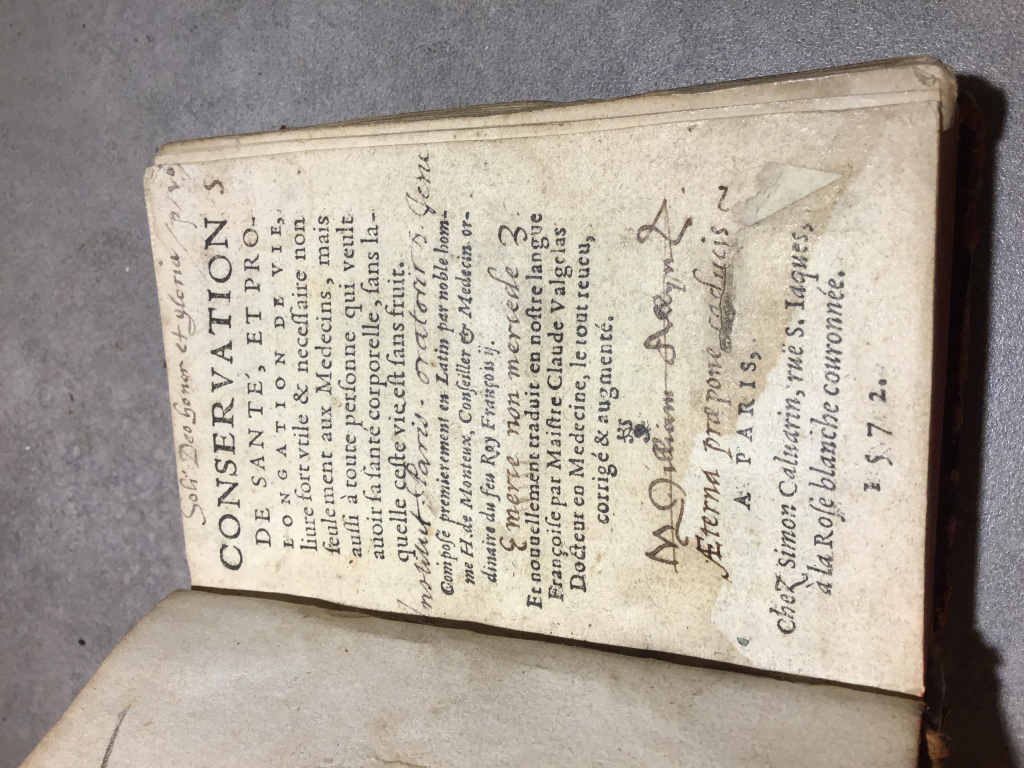 Soli Deo honor et gloria
CONSERVATION
DE SANTÉ, ET PRO-
LONGATION DE VIE,
liure fort vtile & necessaire non
seulement aux Medecins, mais
aussi à toute personne qui veult
auoir sa santé corporelle, sans la-
quelle ceste vie est sans fruit.
Paris. oratorii
Composé premierement en Latin par noble hom-
me H. de Monteux, Conseiller & Medecin or-
dinaire du feu Roy François ij.
E merre non mercede 3
Et nouuellement traduit en nostre langue
Françoise par Maistre Claude Valgelas
Docteur en Medecine, le tout reueu,
corrigé & augmenté.
Æterna præpone caducis
A PARIS,
Chez Simon Caluarin, rue S. Iaques,
à la Rose blanche couronnée.
1572.